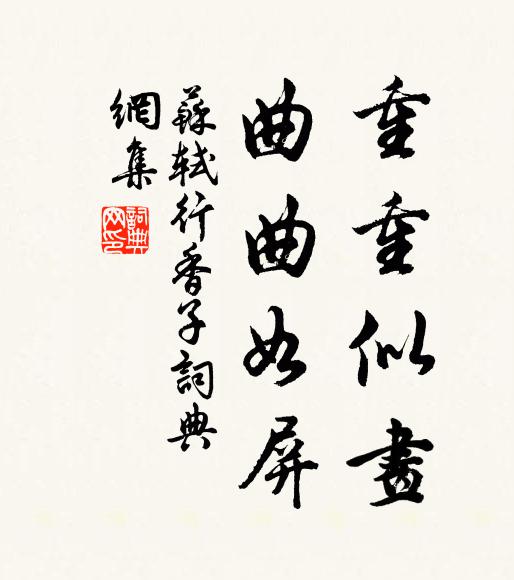 重重似畫
曲曲如屏
蘇軾行香子詞典
網集
詞典
网印